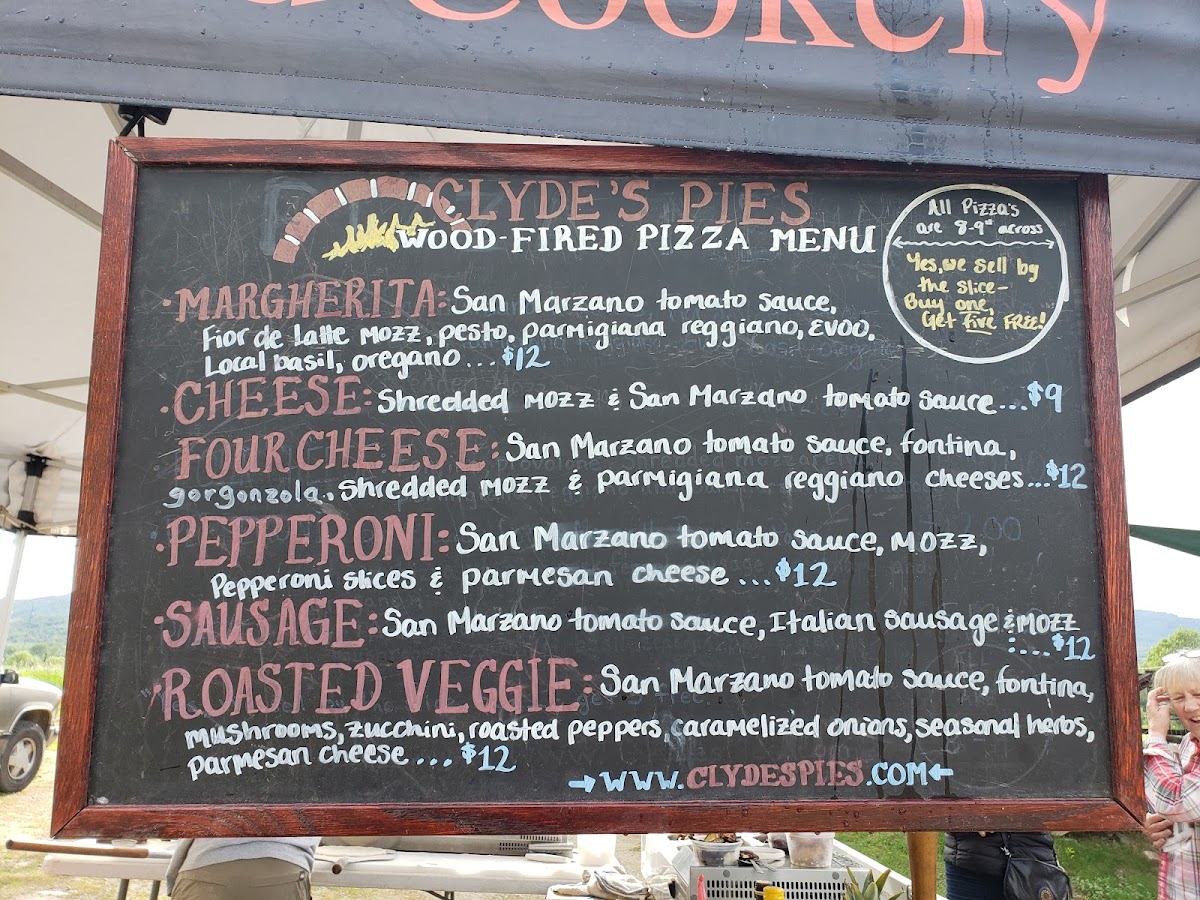 Cookery
CLYDE'S PIES
WOOD-FIRED PIZZA MENU
All Pizza's
are 8-9" across
Yes, we sell by
the slice-
Buy one,
Get Five FREE!
·MARGHERITA: San Marzano tomato sauce,
Fior de Latte MOZZ, pesto, parmigiana reggiano, EVOO,
Local basil, oregano ...$12
·CHEESE: Shredded MOZZ & San Marzano tomato sauce...$9
·FOUR CHEESE: San Marzano tomato sauce, fontina,
gorgonzola, shredded MOZZ & parmigiana reggiano cheeses...$12
·PEPPERONI: San Marzano tomato sauce, MOZZ,
Pepperoni slices & parmesan cheese ...$12
·SAUSAGE: San Marzano tomato sauce, Italian sausage & MOZZ
....$12
·ROASTED VEGGIE: San Marzano tomato sauce, fontina,
mushrooms, zucchini, roasted peppers, caramelized onions, seasonal herbs,
parmesan cheese ...$12
→WWW.CLYDESPIES.COM←